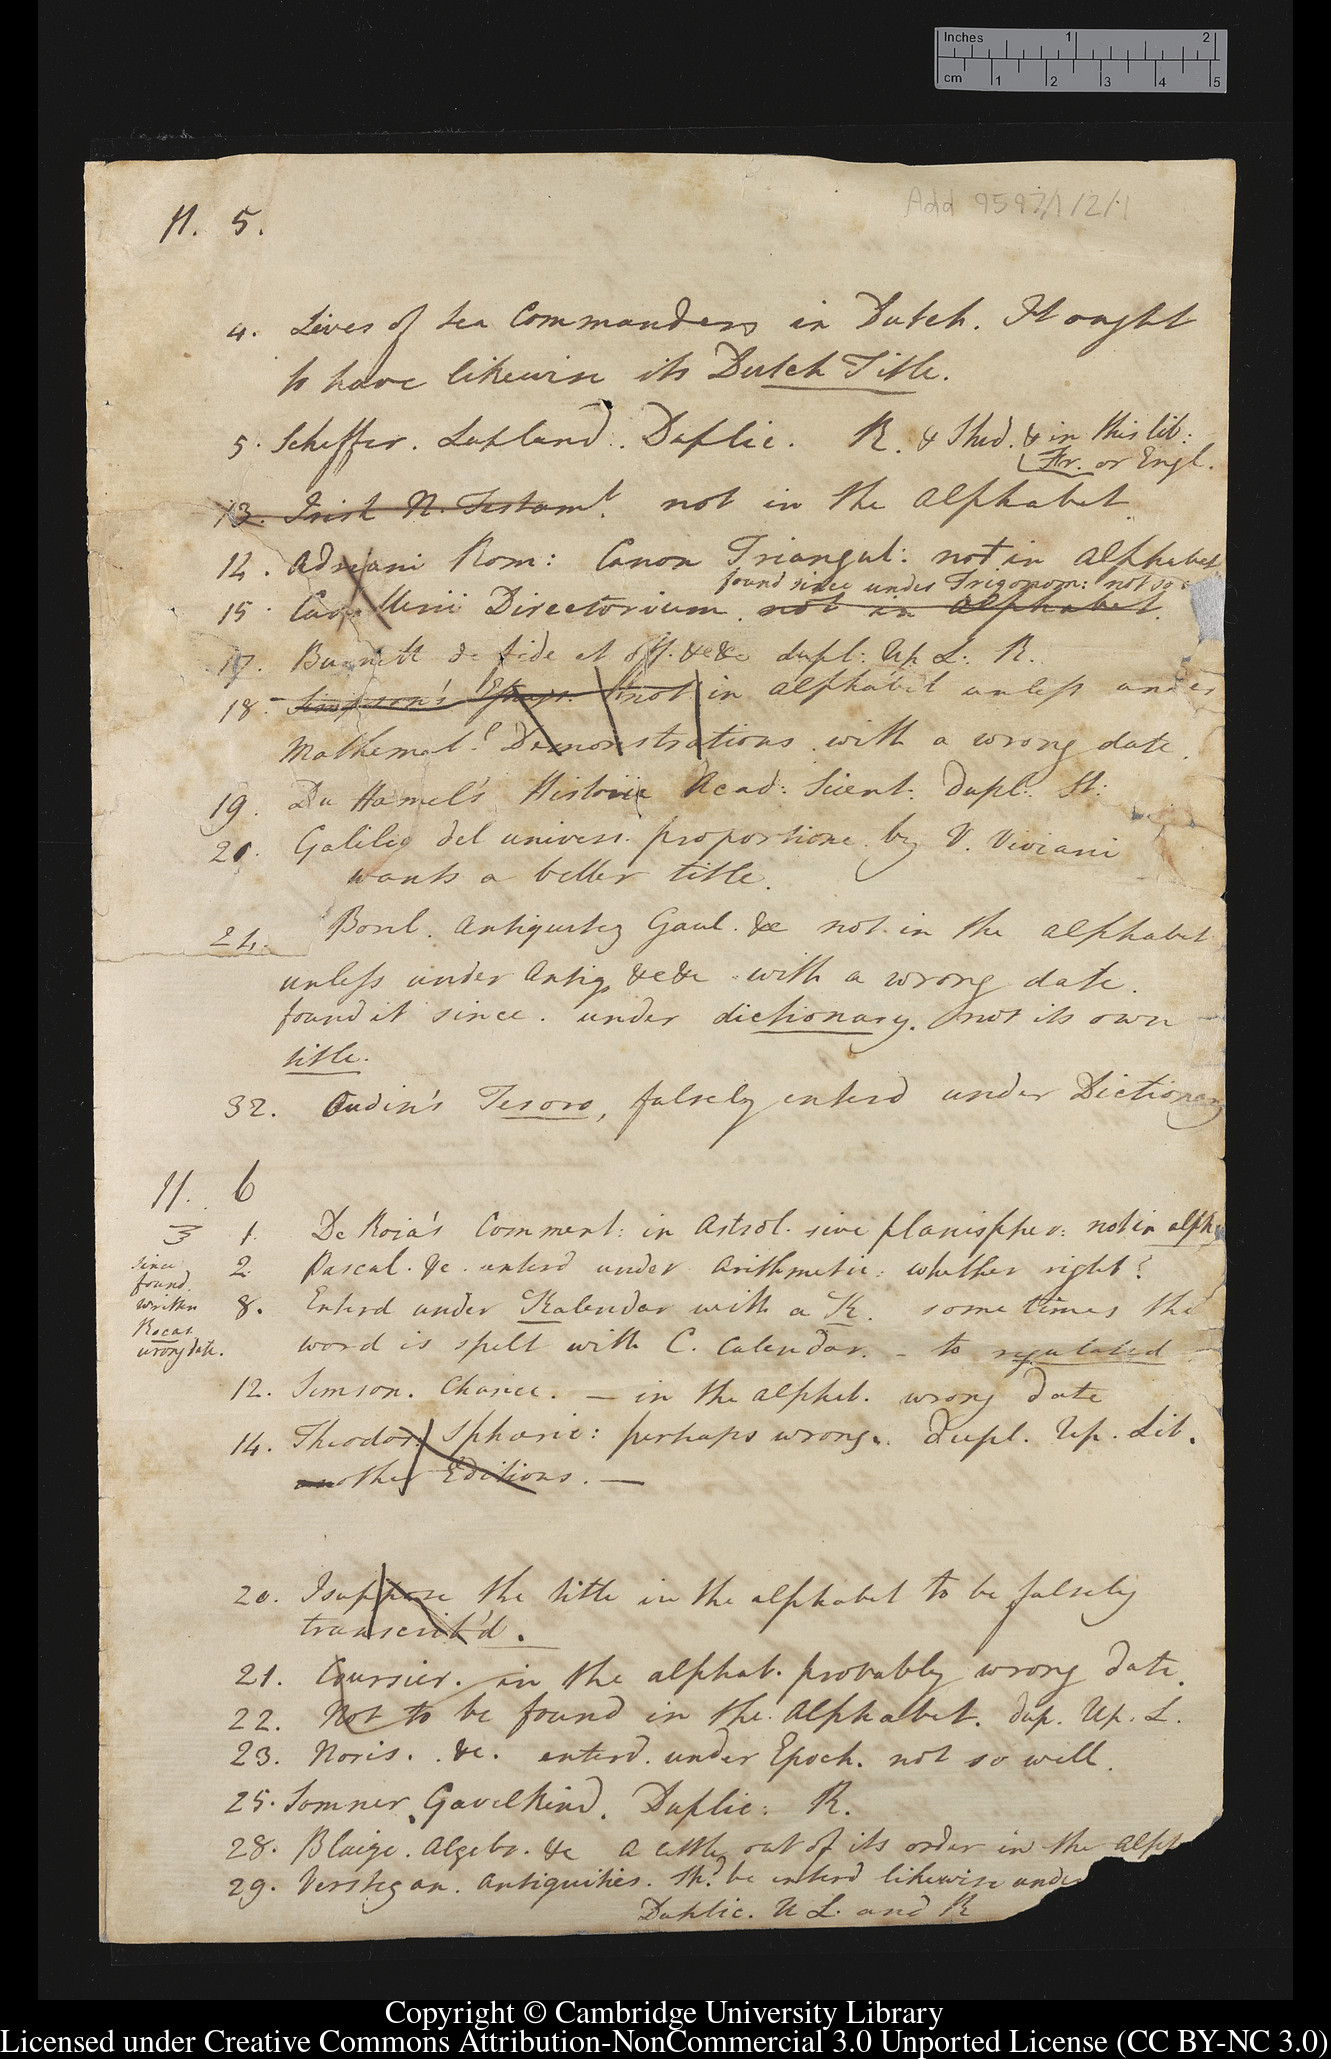 Inches 1 2
cm 1 2 3 4 5
Add 9597/1/2/1
11. 5.
4. Lives of Sea Commanders in Dutch. It ought
to have likewise its Dutch Title.
5. Scheffer. Lapland. Duplic. R. & Stud. & in this lib:
Fr. or Engl.
13. Irish N. Testamt. not in the alphabet.
14. Adriani Rom: Canon Triangul: not in alphabet
found since under Trigonom: not so
15. Cavallerii Directorium. not in alphabet.
17. Burnett de fide et off. &c&c dupl: Up L: R.
18. Simpson's Essays. not in alphabet unless under
Mathemat.l Demonstrations with a wrong date.
19. Du Hamel's Historia Acad: Scient: Dupl: St:
20. Galileo del univers. proportione by V. Viviani
wants a better title.
24. Borel. Antiquitez Gaul. &c not in the alphabet
unless under Antiq &c&c with a wrong date.
found it since. under dictionary. not its own
title.
32. Oudin's Tesoro, falsely enterd under Dictionary
11. 6
3 1. De Roia's Comment: in Astrol. sive planispher: not in alph
since
found
written
Rocas
wrong date.
2. Pascal. &c. enterd under Arithmetic: whether right?
8. Enterd under Kalendar with a K. sometimes the
word is spelt with C. Calendar. - to regulated
12. Simson. Chance. — in the alphab. wrong date
14. Theodos. Sphæric: perhaps wrong. Dupl. Up. Lib.
another Editions. —
20. I suppose the title in the alphabet to be falsely
transcrib'd.
21. Coursier. in the alphab. probably wrong date.
22. Not to be found in the Alphabet. dup. Up. L.
23. Noris. &c. enterd under Epoch. not so well.
25. Somner Gavelkind. Duplic: R.
28. Blaise. Algebr. &c a little out of its order in the alph
29. Verstegan. Antiquities. shd be enterd likewise under
Duplic. U L. and R
Copyright © Cambridge University Library
Licensed under Creative Commons Attribution-NonCommercial 3.0 Unported License (CC BY-NC 3.0)